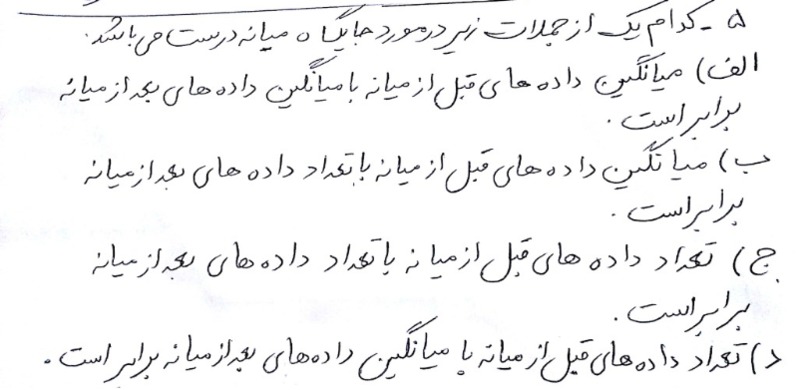 ۵ - کدام یک از جملات زیر در مورد جایگاه میانه درست می باشد.
الف) میانگین داده های قبل از میانه با میانگین داده های بعد از میانه
برابر است.
ب) میانگین داده های قبل از میانه با تعداد داده های بعد از میانه
برابر است.
ج) تعداد داده های قبل از میانه با تعداد داده های بعد از میانه
برابر است.
د) تعداد داده های قبل از میانه با میانگین داده های بعد از میانه برابر است.